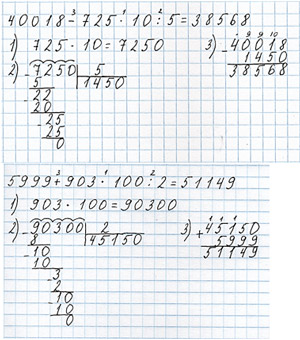 40018 - 725 · 10 : 5 = 38568
3 1 2
1) 725 · 10 = 7250
2) -7250 | 5
5 | 1450
-22
20
-25
25
0
3) -40018
1450
38568
9 9 10
5999 + 903 · 100 : 2 = 51149
3 1 2
1) 903 · 100 = 90300
2) -90300 | 2
8 | 45150
-10
10
-3
2
-10
10
0
3) +45150
5999
51149
1 1 1